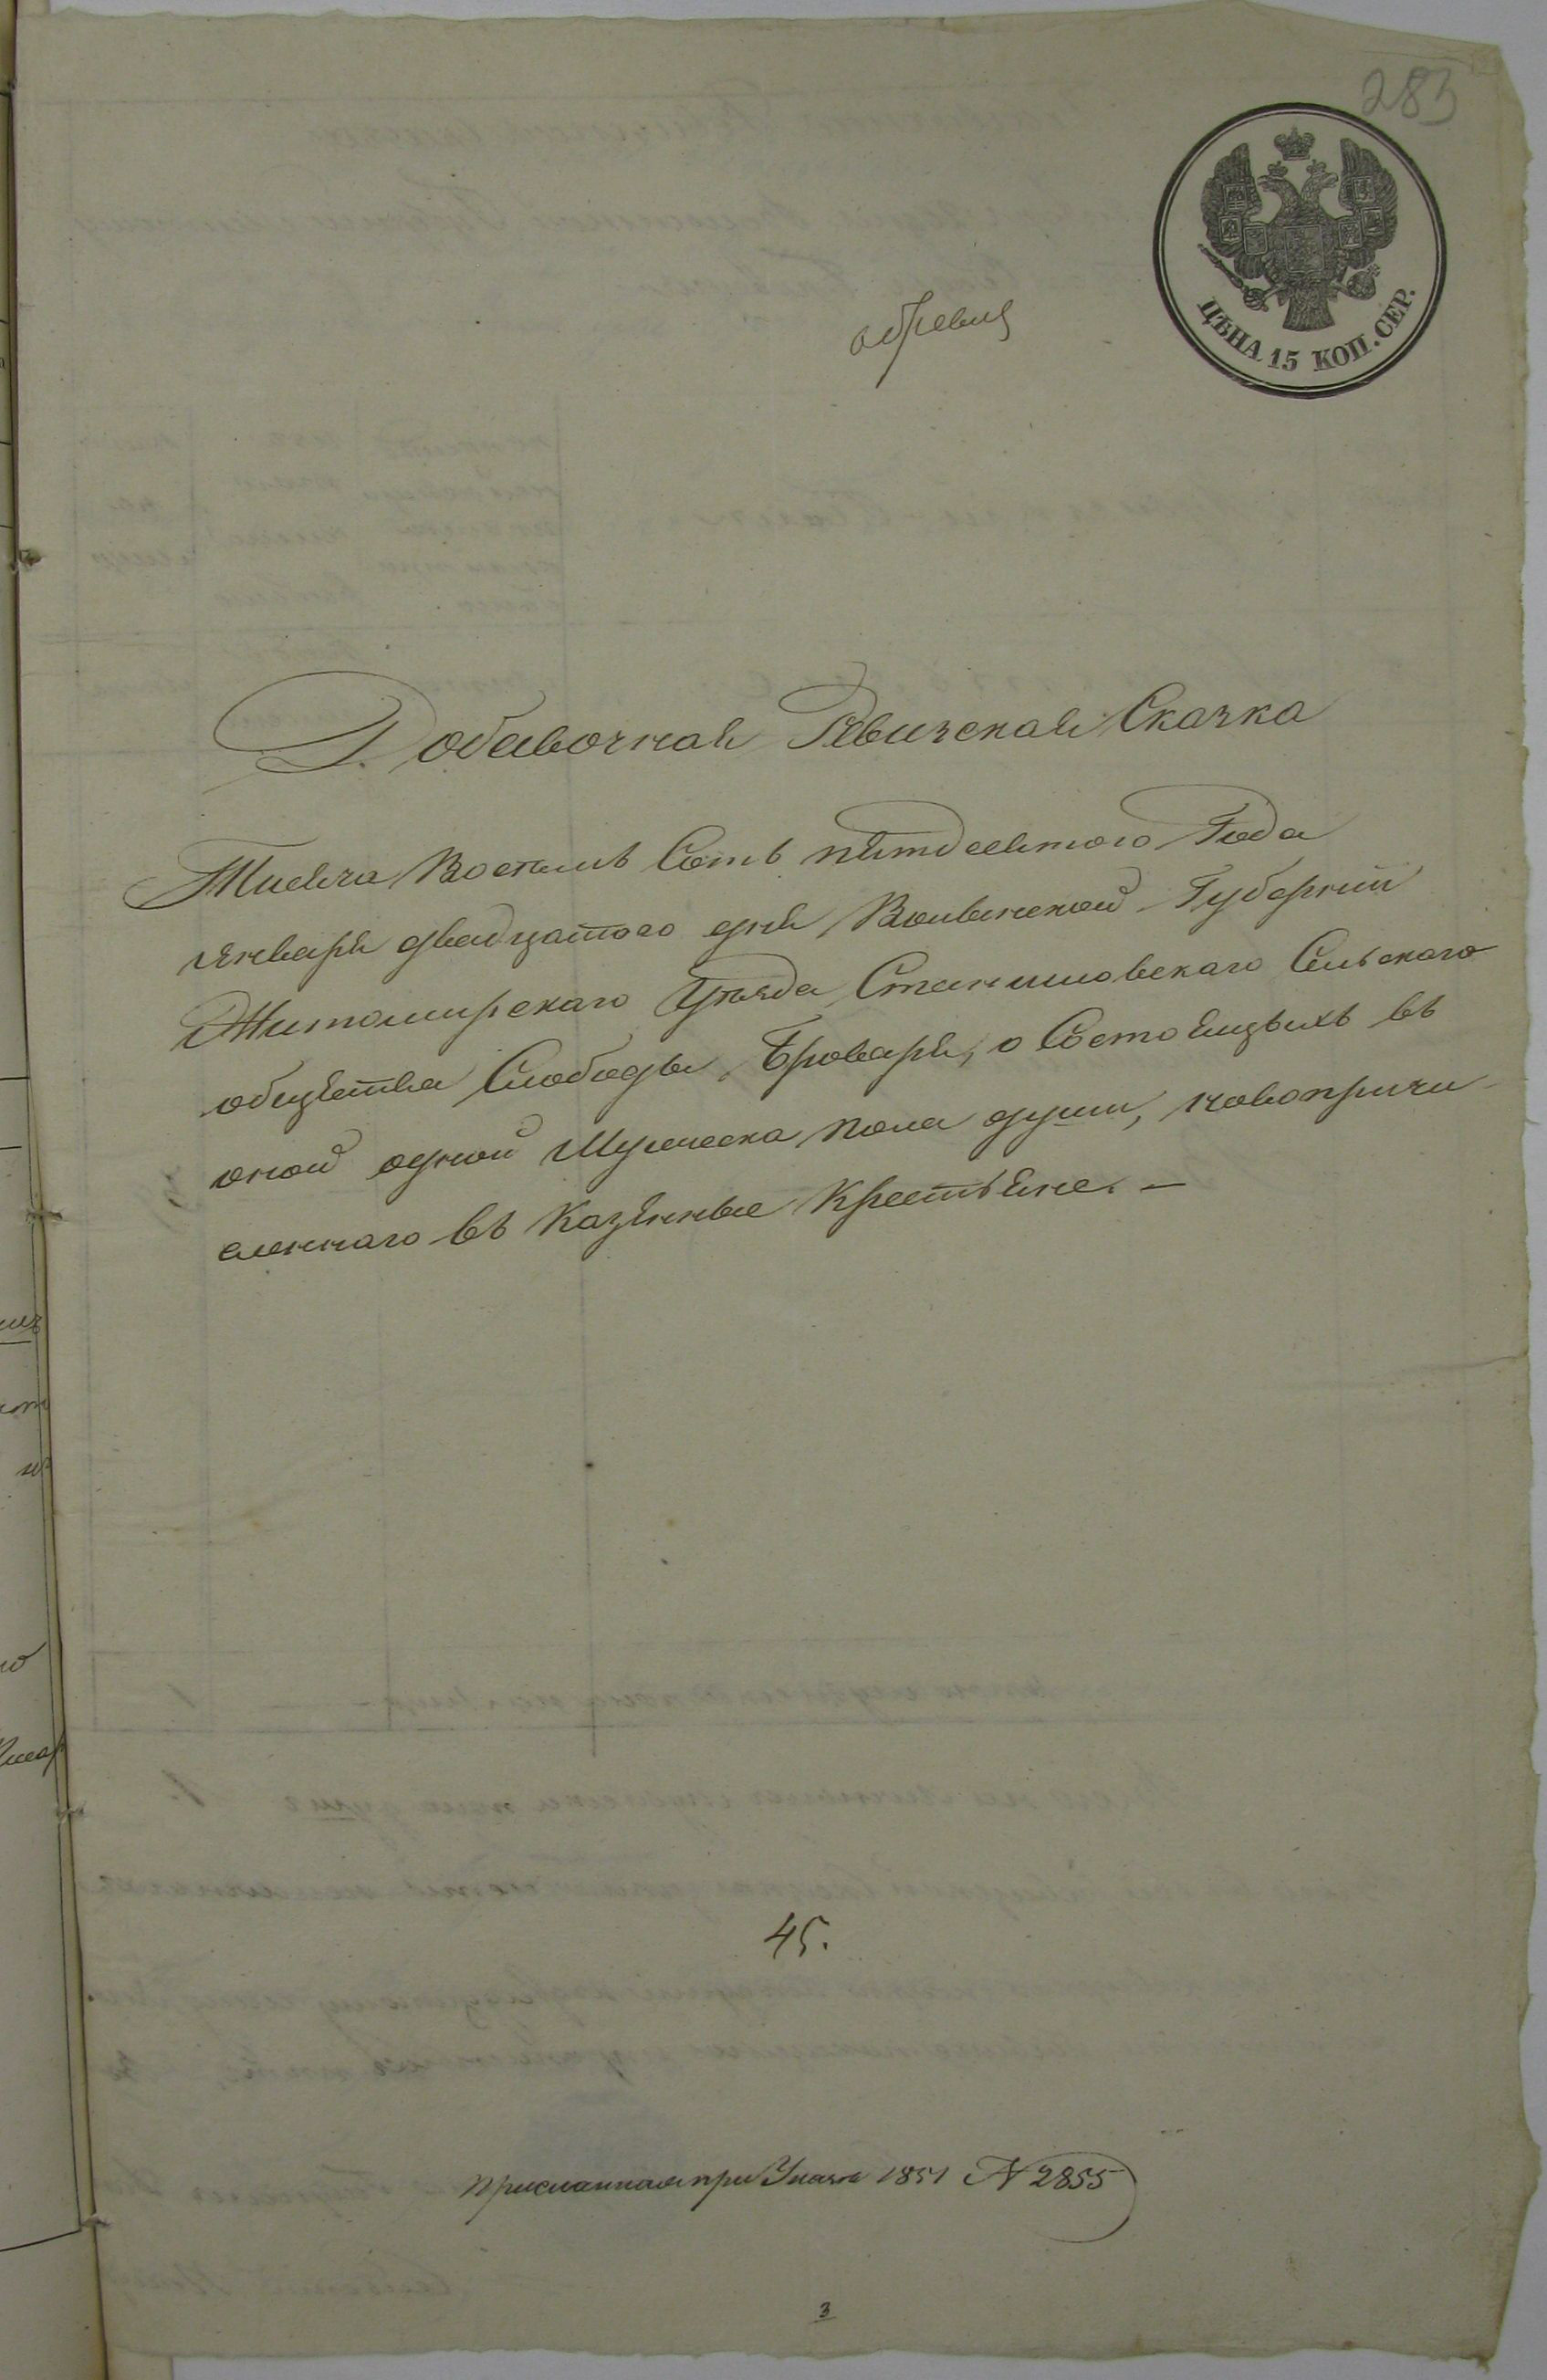 283
ЦѢНА 15 КОП. СЕР.
Добавочная Ревизская Сказка
Тысяча Восемь Сотъ пятдесятого Года
Января двадцатого дня, Волынской Губерніи
Житомирскаго Уѣзда Станишовскаго Сельскаго
общества Слободы Броваря, о Состоящыхъ въ
оной одной Мужеска пола души, новопричи
сленнаго въ Казенные Крестьяне. —
45.
присланная при Указѣ 1851 № 2855
3